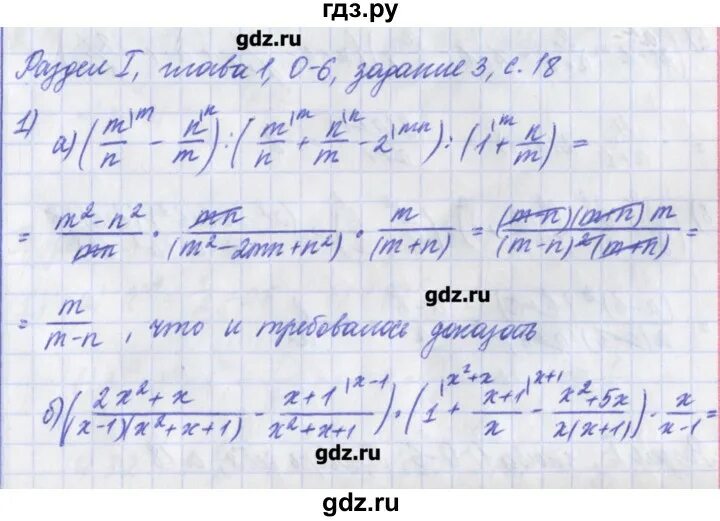 гдз.ру
gdz.ru
Раздел I, глава 1, О-6, задание 3, с. 18
1)
а) (m/n |m - n/m |n) : (m/n |m + n/m |n - 2 |mn) : (1 |m + n/m) =
= (m² - n²)/(mn) · mn/(m² - 2mn + n²) · m/(m + n) = ((m-n)(m+n) m)/((m-n)²(m+n)) =
gdz.ru
= m/(m-n), что и требовалось доказать
б) ((2x² + x)/((x-1)(x² + x + 1)) - (x+1)/(x² + x + 1) |x-1) · (1 |x²+x + (x+1)/x |x+1 - (x² + 5x)/(x(x+1))) · x/(x-1) =
gdz.ru
gdz.ru